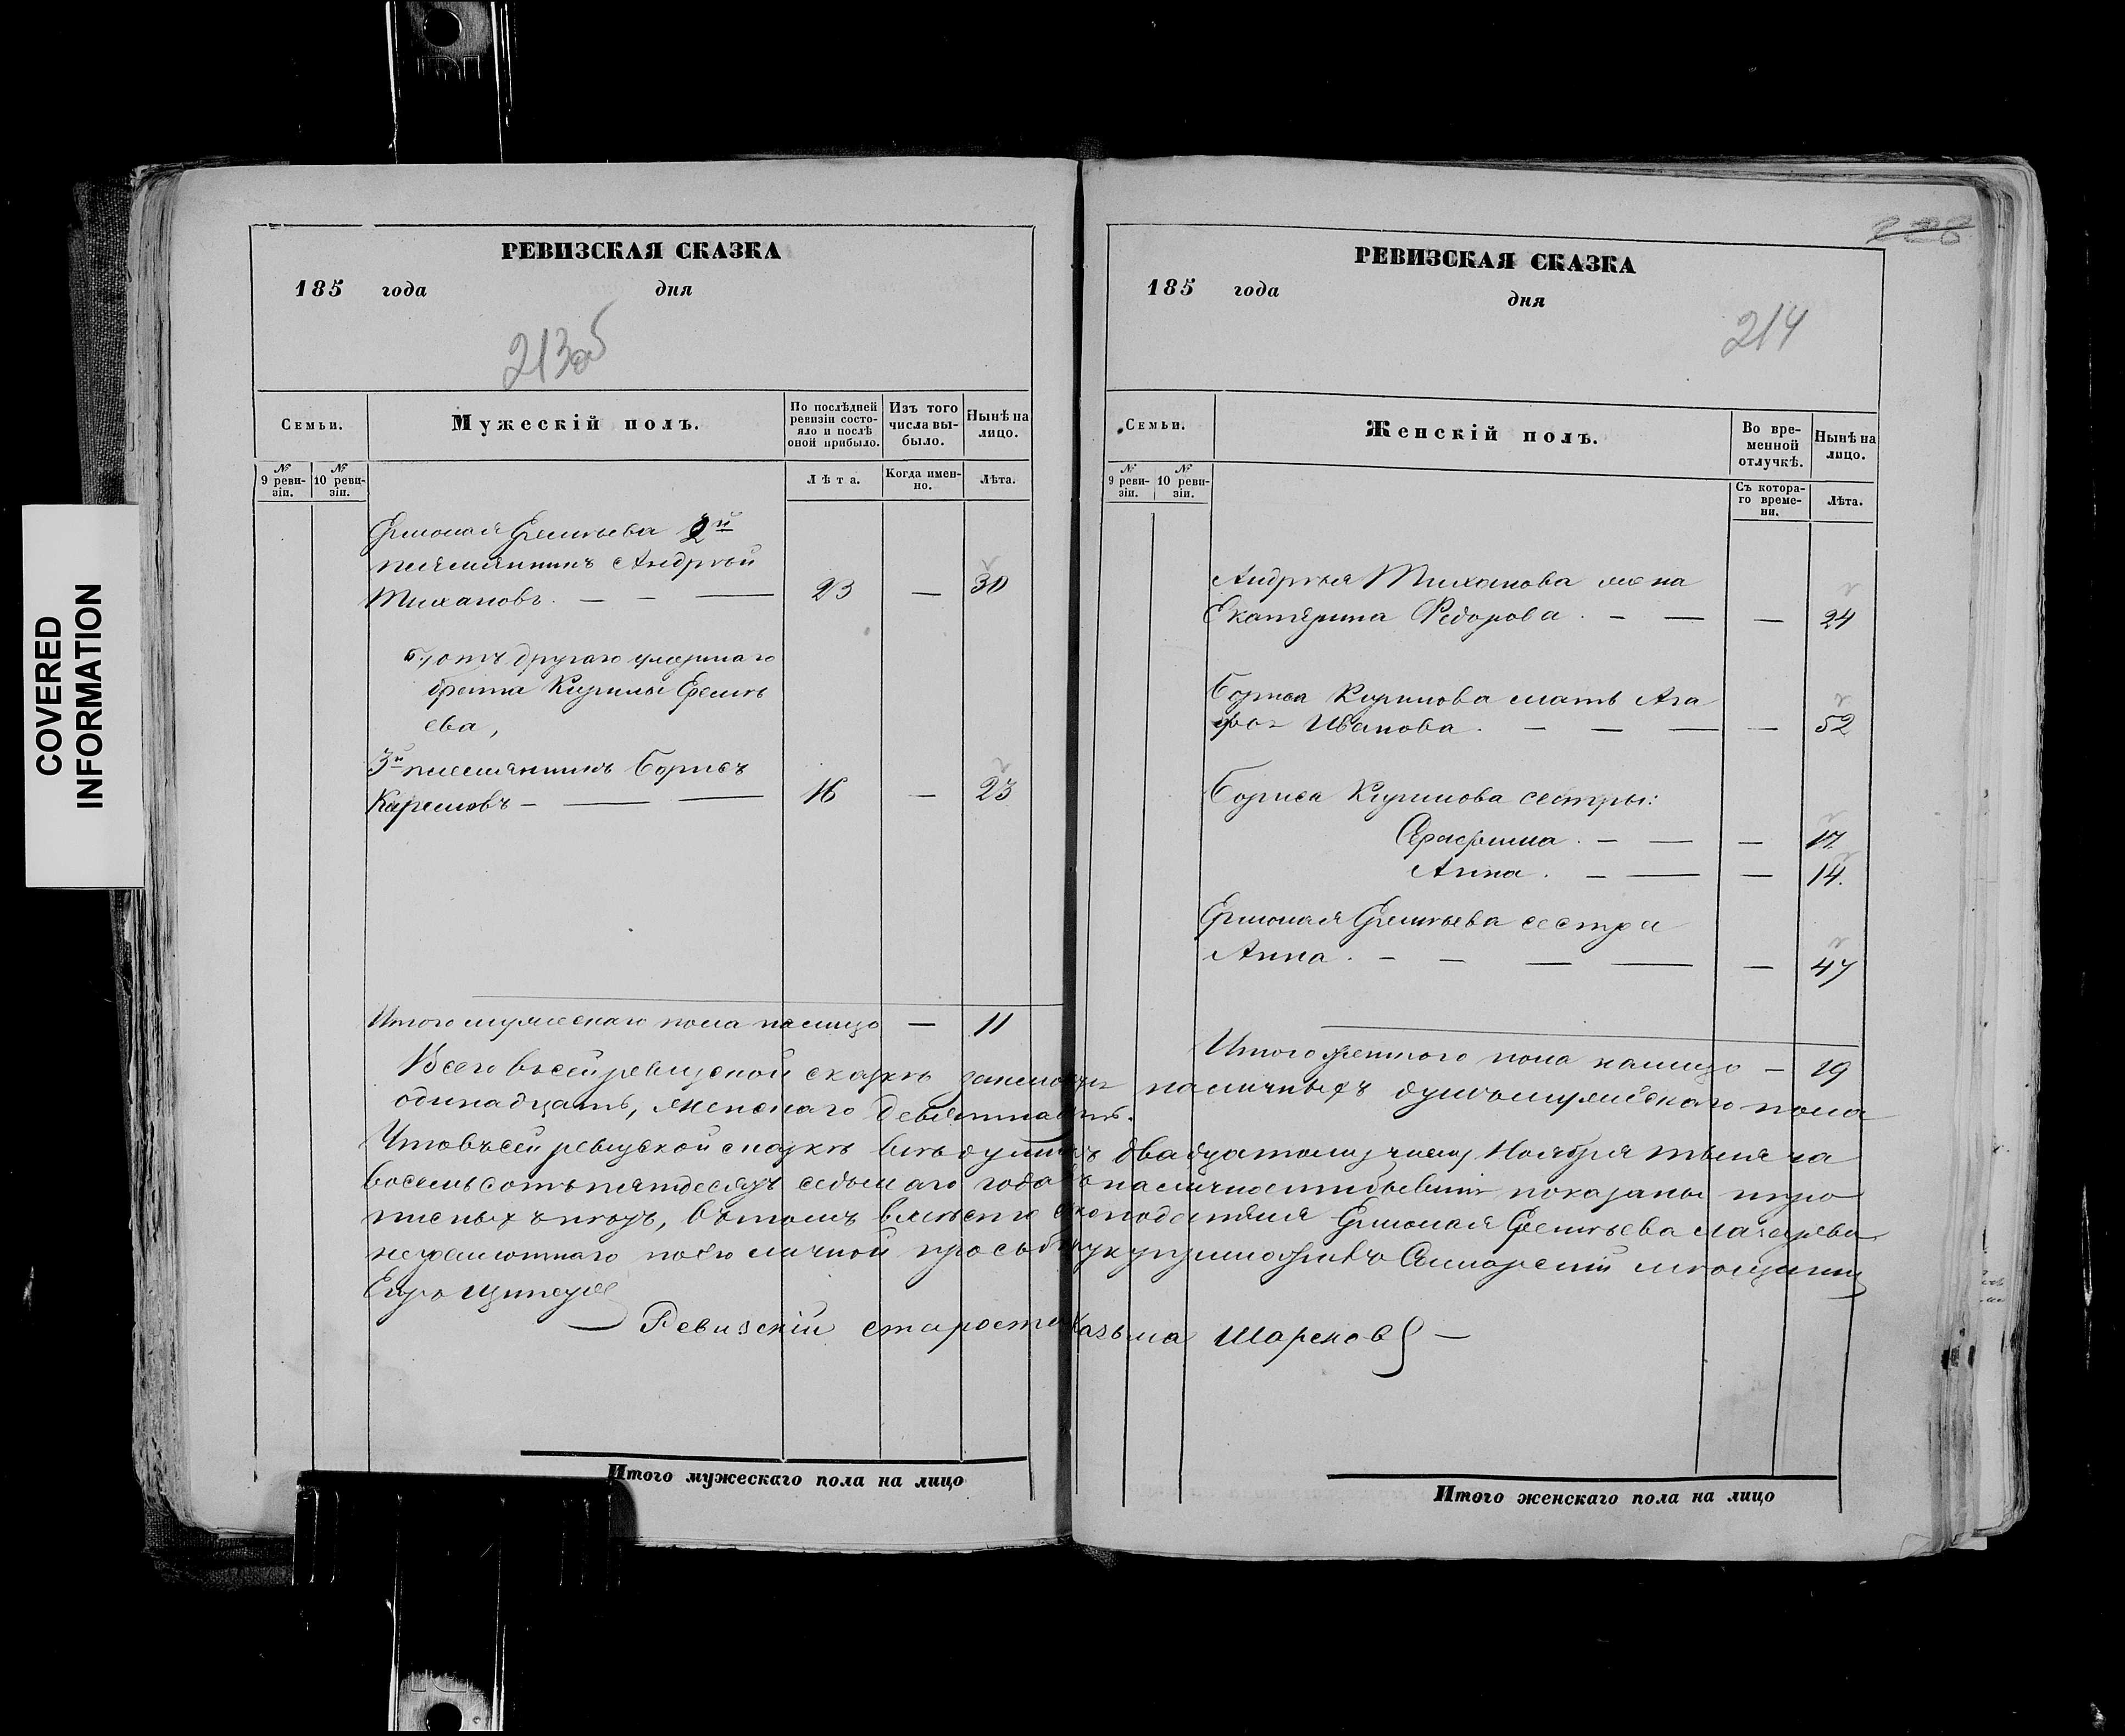 COVERED
INFORMATION
РЕВИЗСКАЯ СКАЗКА
185 года дня
213об
Семьи.
Мужескій полъ.
По послѣдней
ревизіи состо-
яло и послѣ
оной прибыло.
Изъ того
числа вы-
было.
Нынѣ на
лицо.
№
9 реви-
зіи.
№
10 реви-
зіи.
Лѣта.
Когда имен-
но.
Лѣта.
Ермолая 2й
племянникъ Андрей
Тихановъ. — — — 23 — 30
другаго умершаго
брата Кирилы
ева,
3й племянникъ Борисъ
Кириловъ — — — 16 — 23
Итого мужескаго пола налицо — 11
РЕВИЗСКАЯ СКАЗКА
185 года дня
214
Семьи.
Женскій полъ.
Во вре-
менной
отлучкѣ.
Нынѣ на
лицо.
№
9 реви-
зіи.
№
10 реви-
зіи.
Съ котора-
го време-
ни.
Лѣта.
Андрея Тиханова жена
Екатерина Федорова. — — — 24
Бориса Кирилова мать Ага
фья Иванова. — — — — 52
Бориса Кирилова сестры:
— — — 17.
Анна. — — — 14.
Ермолая сестра
Анна. — — — — — 47
Итого женского пола налицо — 19
Всего в сей ревизской сказкѣ наличныхъ душъ мужескаго пола
одинадцать, женскаго девятнадцать.
Что въ сей ревизкой сказкѣ всѣ души къ двадцатому числу Ноября тысяча
восемьсотъ пятдесятъ седьмаго года въ наличности бывшіе показаны и про
писныхъ нѣтъ, въ томъ вмѣсто Ермолая
неграмотнаго по его личной просьбѣ руку приложилъ Самарскій мѣщанинъ
Егоръ
— Ревизскій староста Казьма Шарековъ —
Итого мужескаго пола на лицо
Итого женскаго пола на лицо